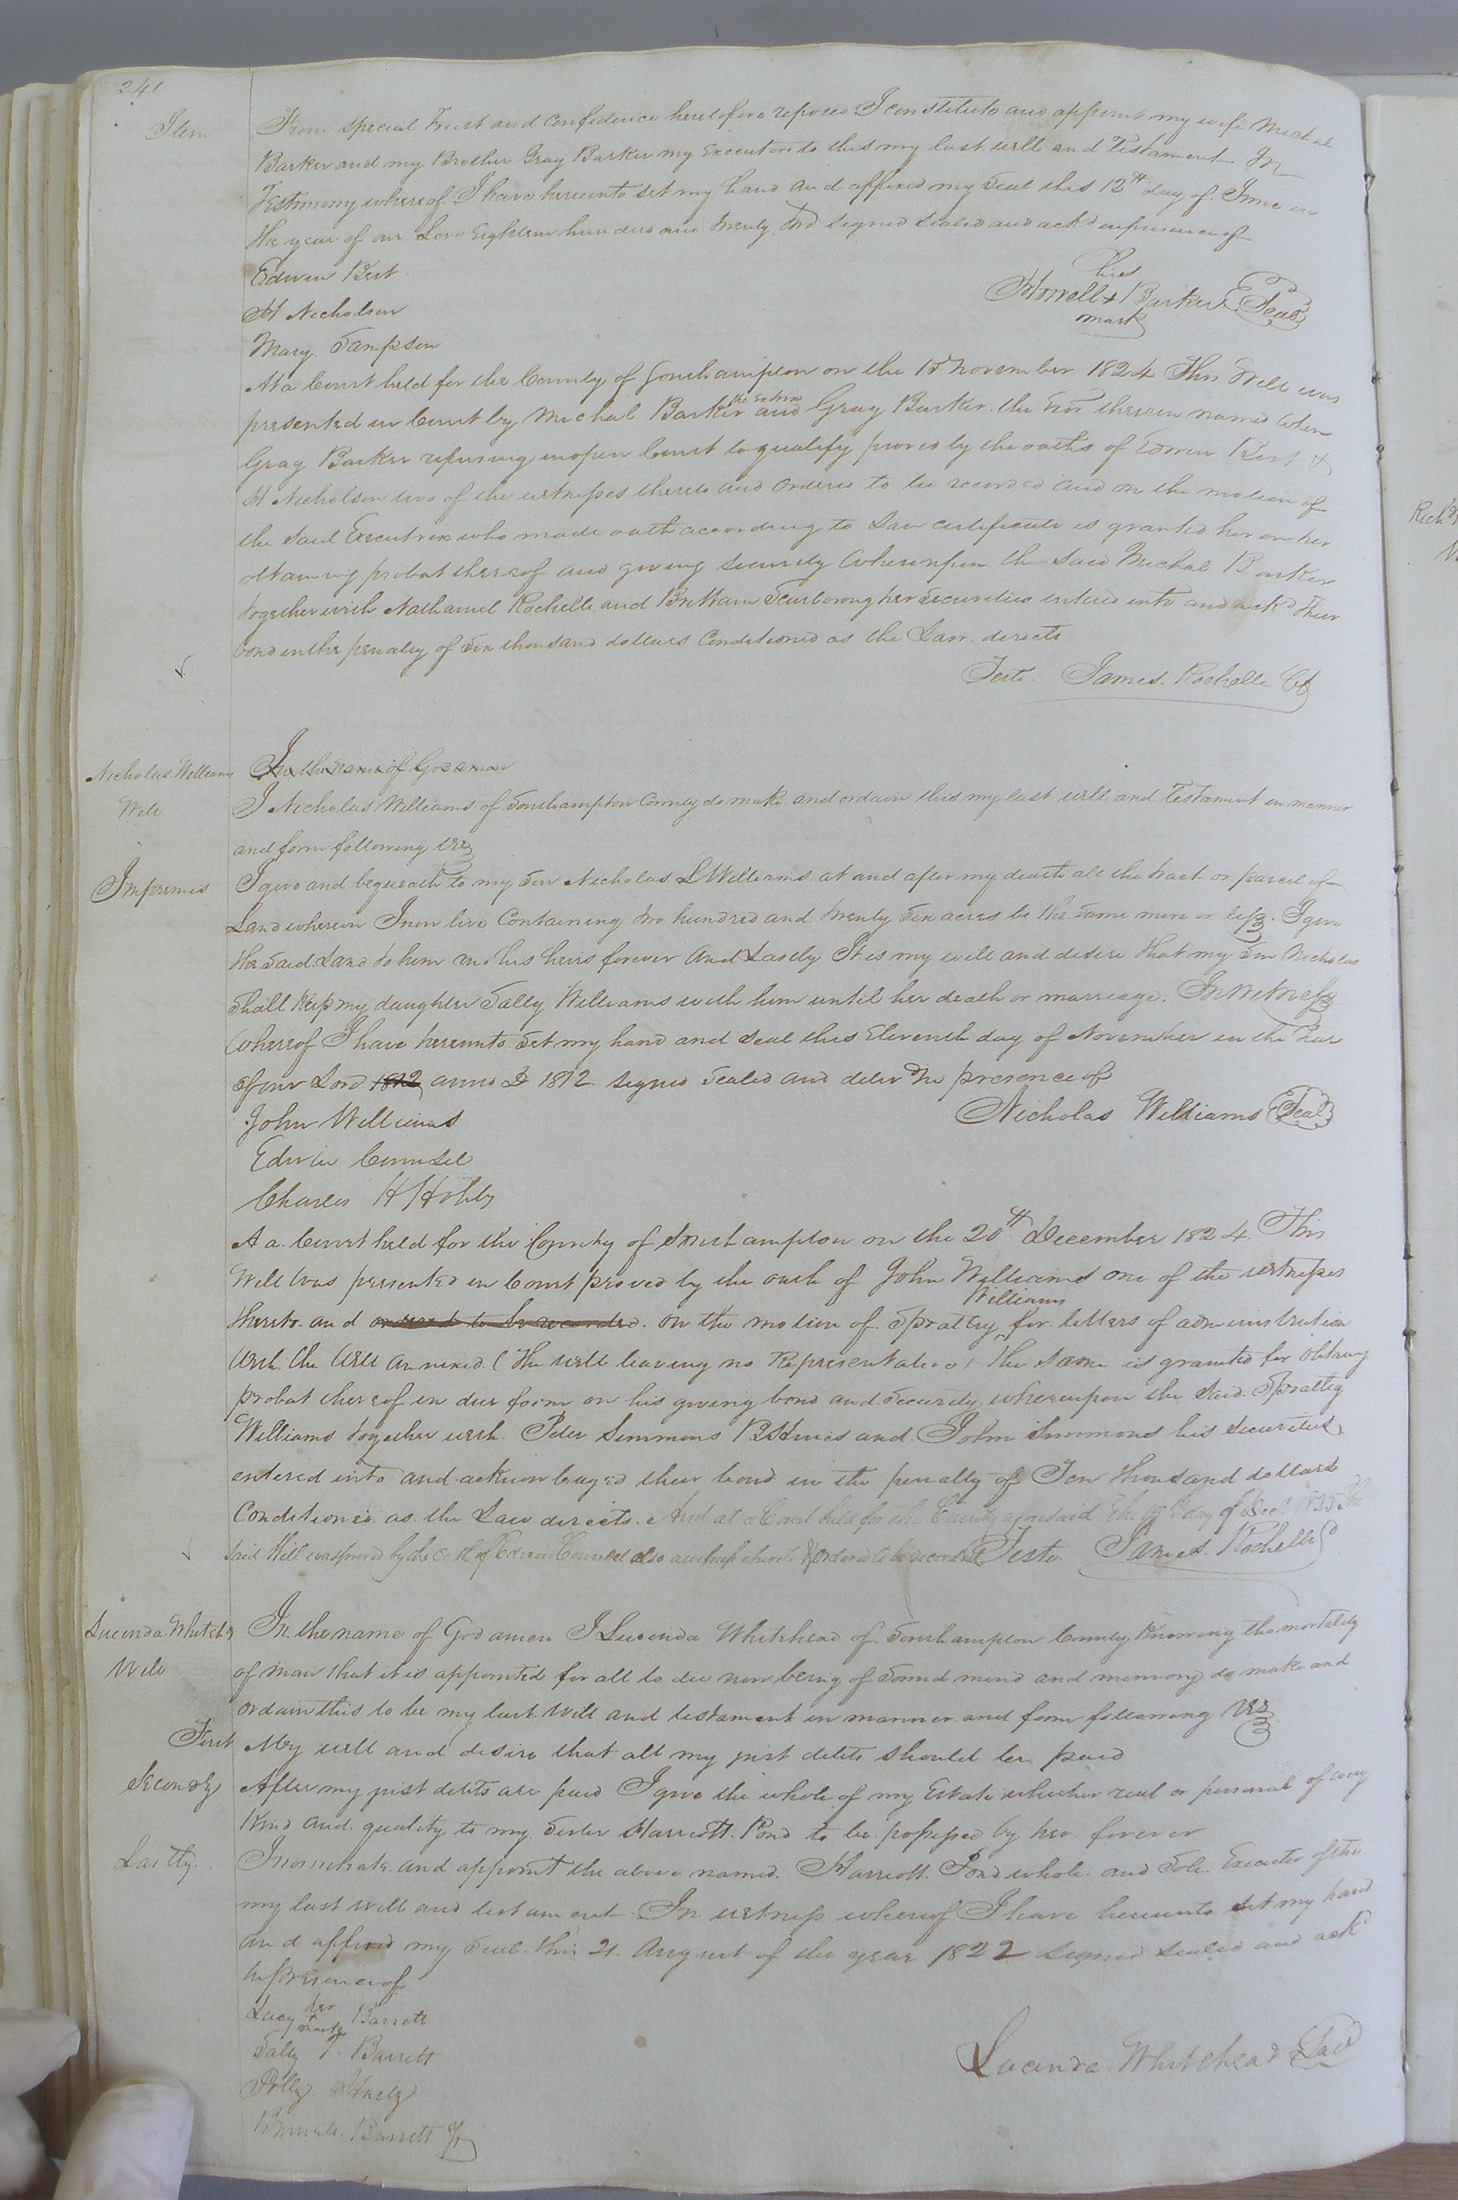 241
Item From special Trust and Confidence heretofore reposed I constitute and appoint my wife Michal
Barker and my Brother Gray Barker my Executors to this my last will and Testament In
Testimony whereof I have hereunto set my hand and affixed my seal this 12th day of June in
the year of our Lord Eighteen hundred and twenty two signed sealed and ackd in presence of
Edwin Best
H Nicholson
Mary Sampson
his
Howell + Barker Seal
mark
At a Court held for the County of Southampton on the 15 November 1824 This Will was
presented in Court by Michal Barker the Extrix and Gray Barker the Exor therein named when
Gray Barker refusing in open Court to qualify proved by the oaths of Edwin Best &
H Nicholson two of the witnesses thereto and Ordered to be recorded and on the motion of
the said Executrix who made oath according to Law certificate is granted her on her
obtaining probat thereof and giving security Whereupon the said Michal Barker
together with Nathaniel Rochelle and Brittain Scarborough her securities entered into and ackd their
bond in the penalty of Six thousand dollars Conditioned as the Law directs
Teste James Rochelle Ct
Nicholas Williams
Will
In the name of God amen
I Nicholas Williams of Southampton County do make and ordain this my last will and Testament in manner
and form following Viz
Imprimis I give and bequeath to my Son Nicholas L Williams at and after my death all the tract or parcel of
Land wherein I now live Containing two hundred and twenty six acres be the same more or less. I give
the said Land to him and his heirs forever And Lastly It is my will and desire that my Son Nicholas
shall keep my daughter Sally Williams with him until her death or marriage. In Witness
whereof I have hereunto set my hand and seal this Eleventh day of November in the Year
of our Lord 1812 anno D 1812 signed sealed and delivd In presence of
Nicholas Williams Seal
John Williams
Edwin Counsel
Charles H
At a Court held for the County of Southampton on the 20th December 1824 This
Will was presented in Court proved by the oath of John Williams one of the witnesses
thereto and ordered to be recorded. on the motion of Spratley Williams for letters of administration
with the Will annexed (the will leaving no Representative) the same is granted for obtaing
probat thereof in due form on his giving bond and Security whereupon the said Spratley
Williams together with Peter Simmons and John Simmons his securities
entered into and acknowledged their bond in the penalty of Ten thousand dollars
Conditioned as the Law directs. And at a Court held for the County aforesaid the 19th day of Decr 1825 the
said Will was proved by the oath of Edwin Counsel also a witness thereto & Ordered to be recorded Teste James Rochelle C
Lucinda Whiteh
Will
In the name of God amen I Lucinda Whitehead of Southampton County Knowing the mortality
of man that it is appointed for all to die now being of Sound mind and memory do make and
ordain this to be my last Will and testament in manner and form following Viz
First My will and desire that all my just debts should be paid
Secondly After my just debts are paid I give the whole of my Estate whether real or personal of every
Kind and quality to my Sister Harriott Pond to be possessed by her forever
Lastly. I nominate and appoint the above named Harriott Pond whole and Sole Executor of this
my last will and testament In witness whereof I have hereunto set my hand
and affixed my Seal this 21 August of the year 1822 signed sealed and ackd
in presence of
Lucy her + mark Barrett
Sally T. Barrett
Polly
Barrett Jr
Lucinda Whitehead Seal
Richd